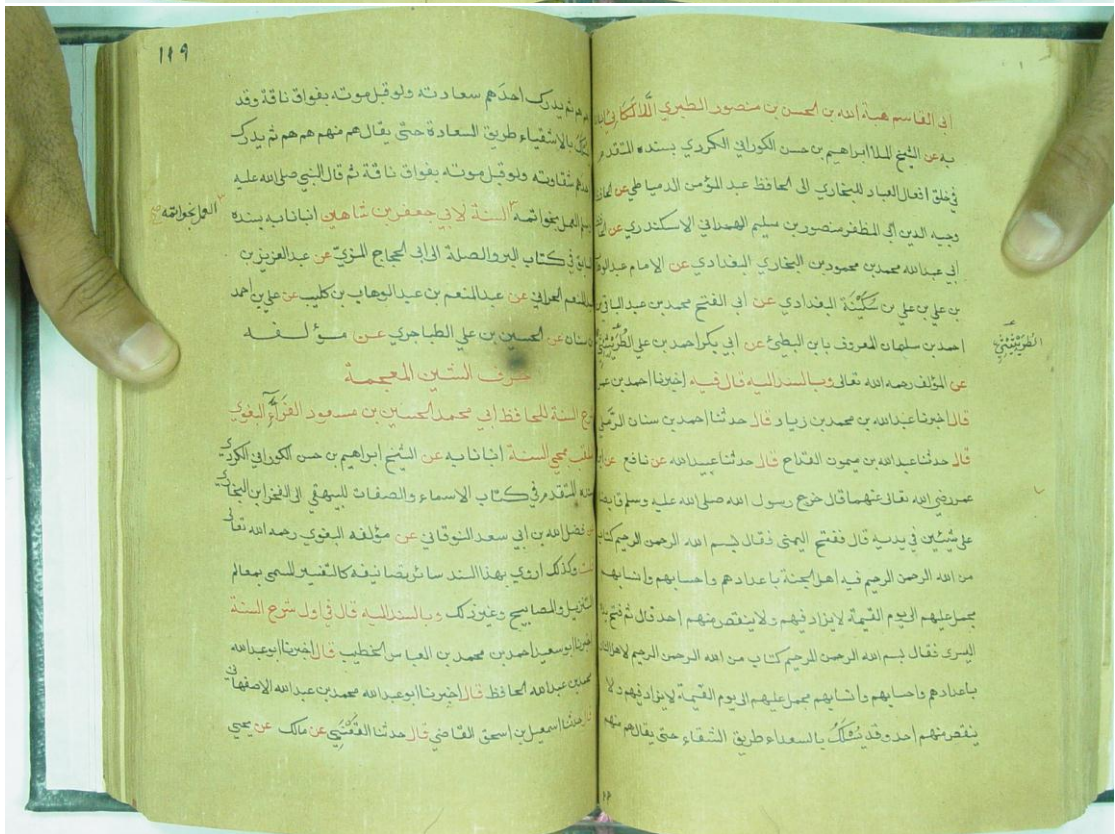 أبي القاسم هبة الله بن الحسن بن منصور الطبري اللالكائي
به عن الشيخ الملا ابراهيم بن حسن الكوراني الكردي بسنده المتقدم
في خلق افعال العباد للبخاري الى الحافظ عبد المؤمن الدمياطي عن الحافظ
وجيه الدين أبي المظفر منصور بن سليم الهمداني الاسكندري عن
أبي عبد الله محمد بن محمود بن البخاري البغدادي عن الامام عبد الوهاب
بن علي بن علي بن سكينة البغدادي عن أبي الفتح محمد بن عبد الباقي بن
احمد بن سلمان المعروف بابن البطي عن أبي بكر احمد بن علي الطريثيثي
الطريثيثي
عن المؤلف رحمه الله تعالى وبالسند اليه قال فيه اخبرنا احمد بن
قال اخبرنا عبد الله بن محمد بن زياد قال حدثنا احمد بن سنان الرملي
قال حدثنا عبد الله بن ميمون القداح قال حدثنا عبيد الله عن نافع عن ابن
عمر رضي الله تعالى عنهما قال خرج رسول الله صلى الله عليه وسلم قابضا
على شيئين في يديه قال ففتح اليمنى فقال بسم الله الرحمن الرحيم كتاب
من الله الرحمن الرحيم فيه اهل الجنة باعدادهم واحسابهم وانسابهم
مجمل عليهم الى يوم القيمة لا يزاد فيهم ولا ينقص منهم احد قال ثم فتح
اليسرى فقال بسم الله الرحمن الرحيم كتاب من الله الرحمن الرحيم لاهل النار
باعدادهم واحسابهم وانسابهم مجمل عليهم الى يوم القيمة لا يزاد فيهم ولا
ينقص منهم احد وقد يسلك بالسعداء طريق الشقاء حتى يقال هم منهم
١٩٩
هم هم ثم يدرك احدهم سعادته ولو قبل موته بفواق ناقة وقد
يسلك بالاشقياء طريق السعادة حتى يقال هم منهم هم هم ثم يدرك
احدهم شقاوته ولو قبل موته بفواق ناقة ثم قال النبي صلى الله عليه
وسلم العمل بخواتمه السنة لابي جعفر بن شاهين انبانا به بسنده
العمل بخواتمه صح
السابق في كتاب البر والصلة الى ابي الحجاج المزي عن عبد العزيز بن
عبد المنعم الحراني عن عبد المنعم بن عبد الوهاب بن كليب عن علي بن احمد
بن سنان عن الحسين بن علي الطباجري عن مؤلفه
حرف الشين المعجمة
شرح السنة للحافظ ابي محمد الحسين بن مسعود الفراء البغوي
الملقب بمحيي السنة انبانا به عن الشيخ ابراهيم بن حسن الكوراني الكردي
بسنده المتقدم في كتاب الاسماء والصفات للبيهقي الى الفخر ابن البخاري
عن فضل الله بن ابي سعد النوقاني عن مؤلفه البغوي رحمه الله تعالى
قلت وكذلك اروي بهذا السند سائر تصانيفه كالتفسير المسمى بمعالم
التنزيل والمصابيح وغير ذلك وبالسند اليه قال في اول شرح السنة
اخبرنا ابو سعيد احمد بن محمد بن العباس الخطيب قال اخبرنا ابو عبد الله
محمد بن عبد الله الحافظ قال اخبرنا ابو عبد الله محمد بن عبد الله الاصفهاني
قال حدثنا اسمعيل بن اسحق القاضي قال حدثنا القعنبي عن مالك عن يحيى